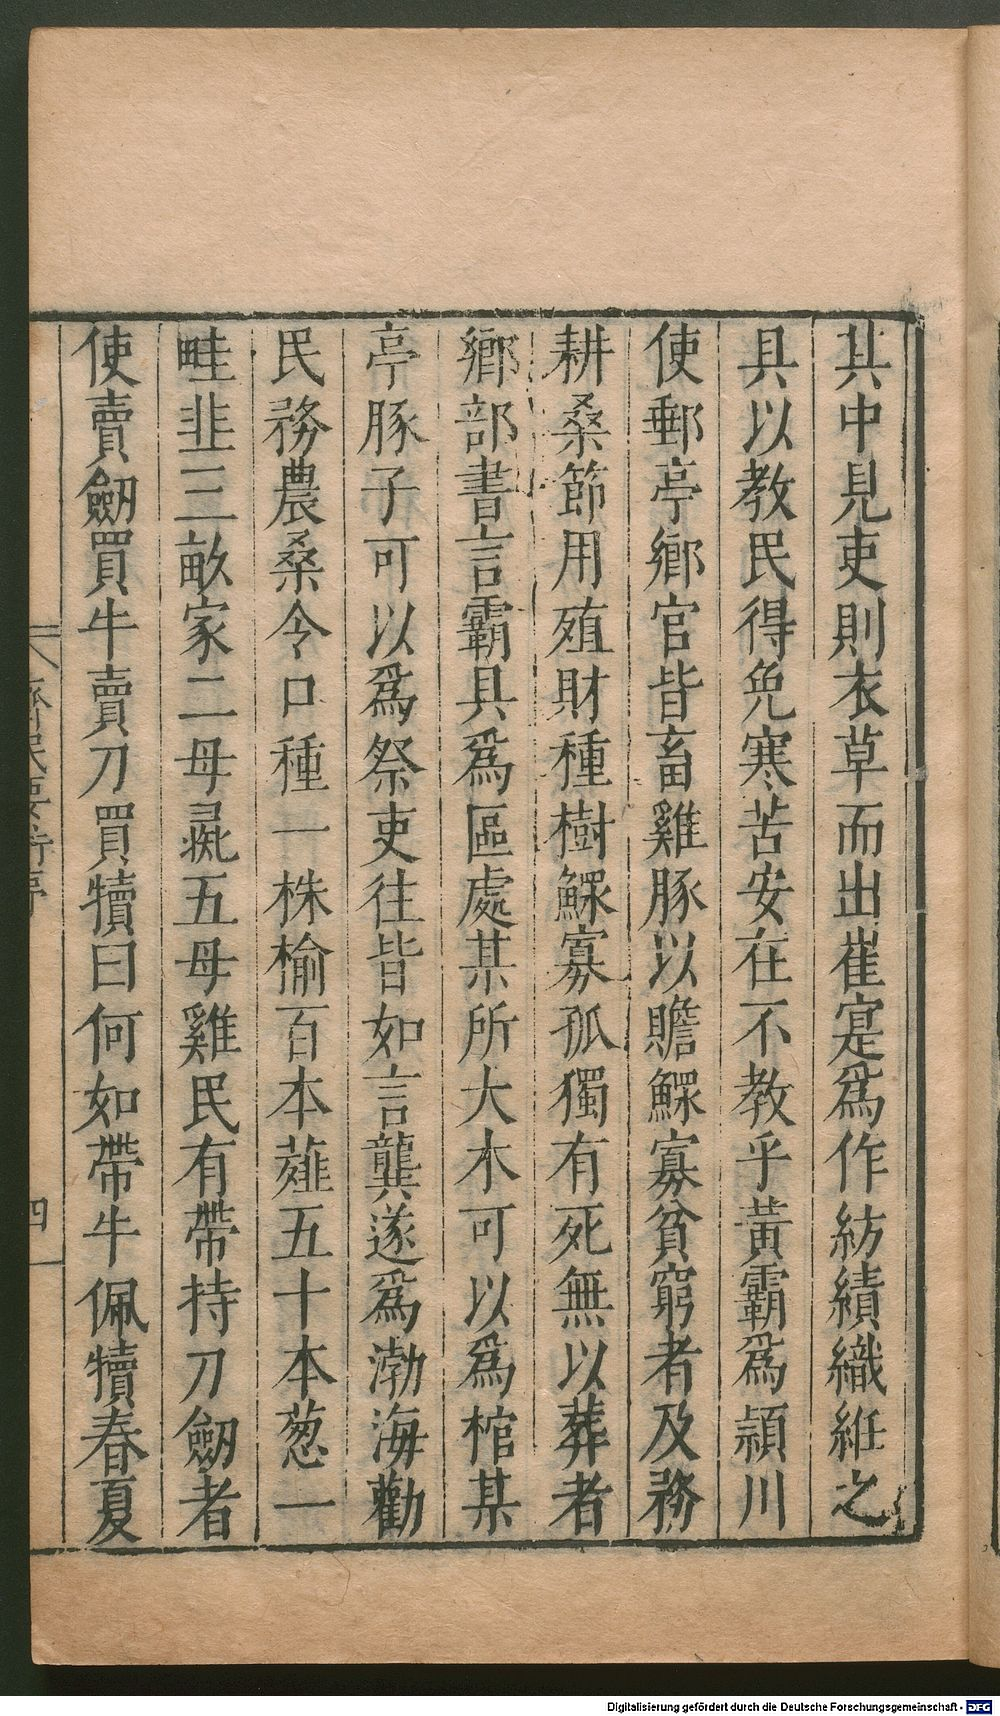 其中見吏則衣草而出崔寔爲作紡績織絍之
具以教民得免寒苦安在不教乎黃霸爲潁川
使郵亭鄉官皆畜雞豚以贍鰥寡貧窮者及務
耕桑節用殖財種樹鰥寡孤獨有死無以葬者
鄉部書言霸具爲區處某所大木可以爲棺某
亭豚子可以爲祭吏往皆如言龔遂爲渤海勸
民務農桑令口種一株榆百本薤五十本葱一
畦韭三畝家二母彘五母雞民有帶持刀劒者
使賣劒買牛賣刀買犢曰何如帶牛佩犢春夏
齊民要術序
四
Digitalisierung gefördert durch die Deutsche Forschungsgemeinschaft - DFG